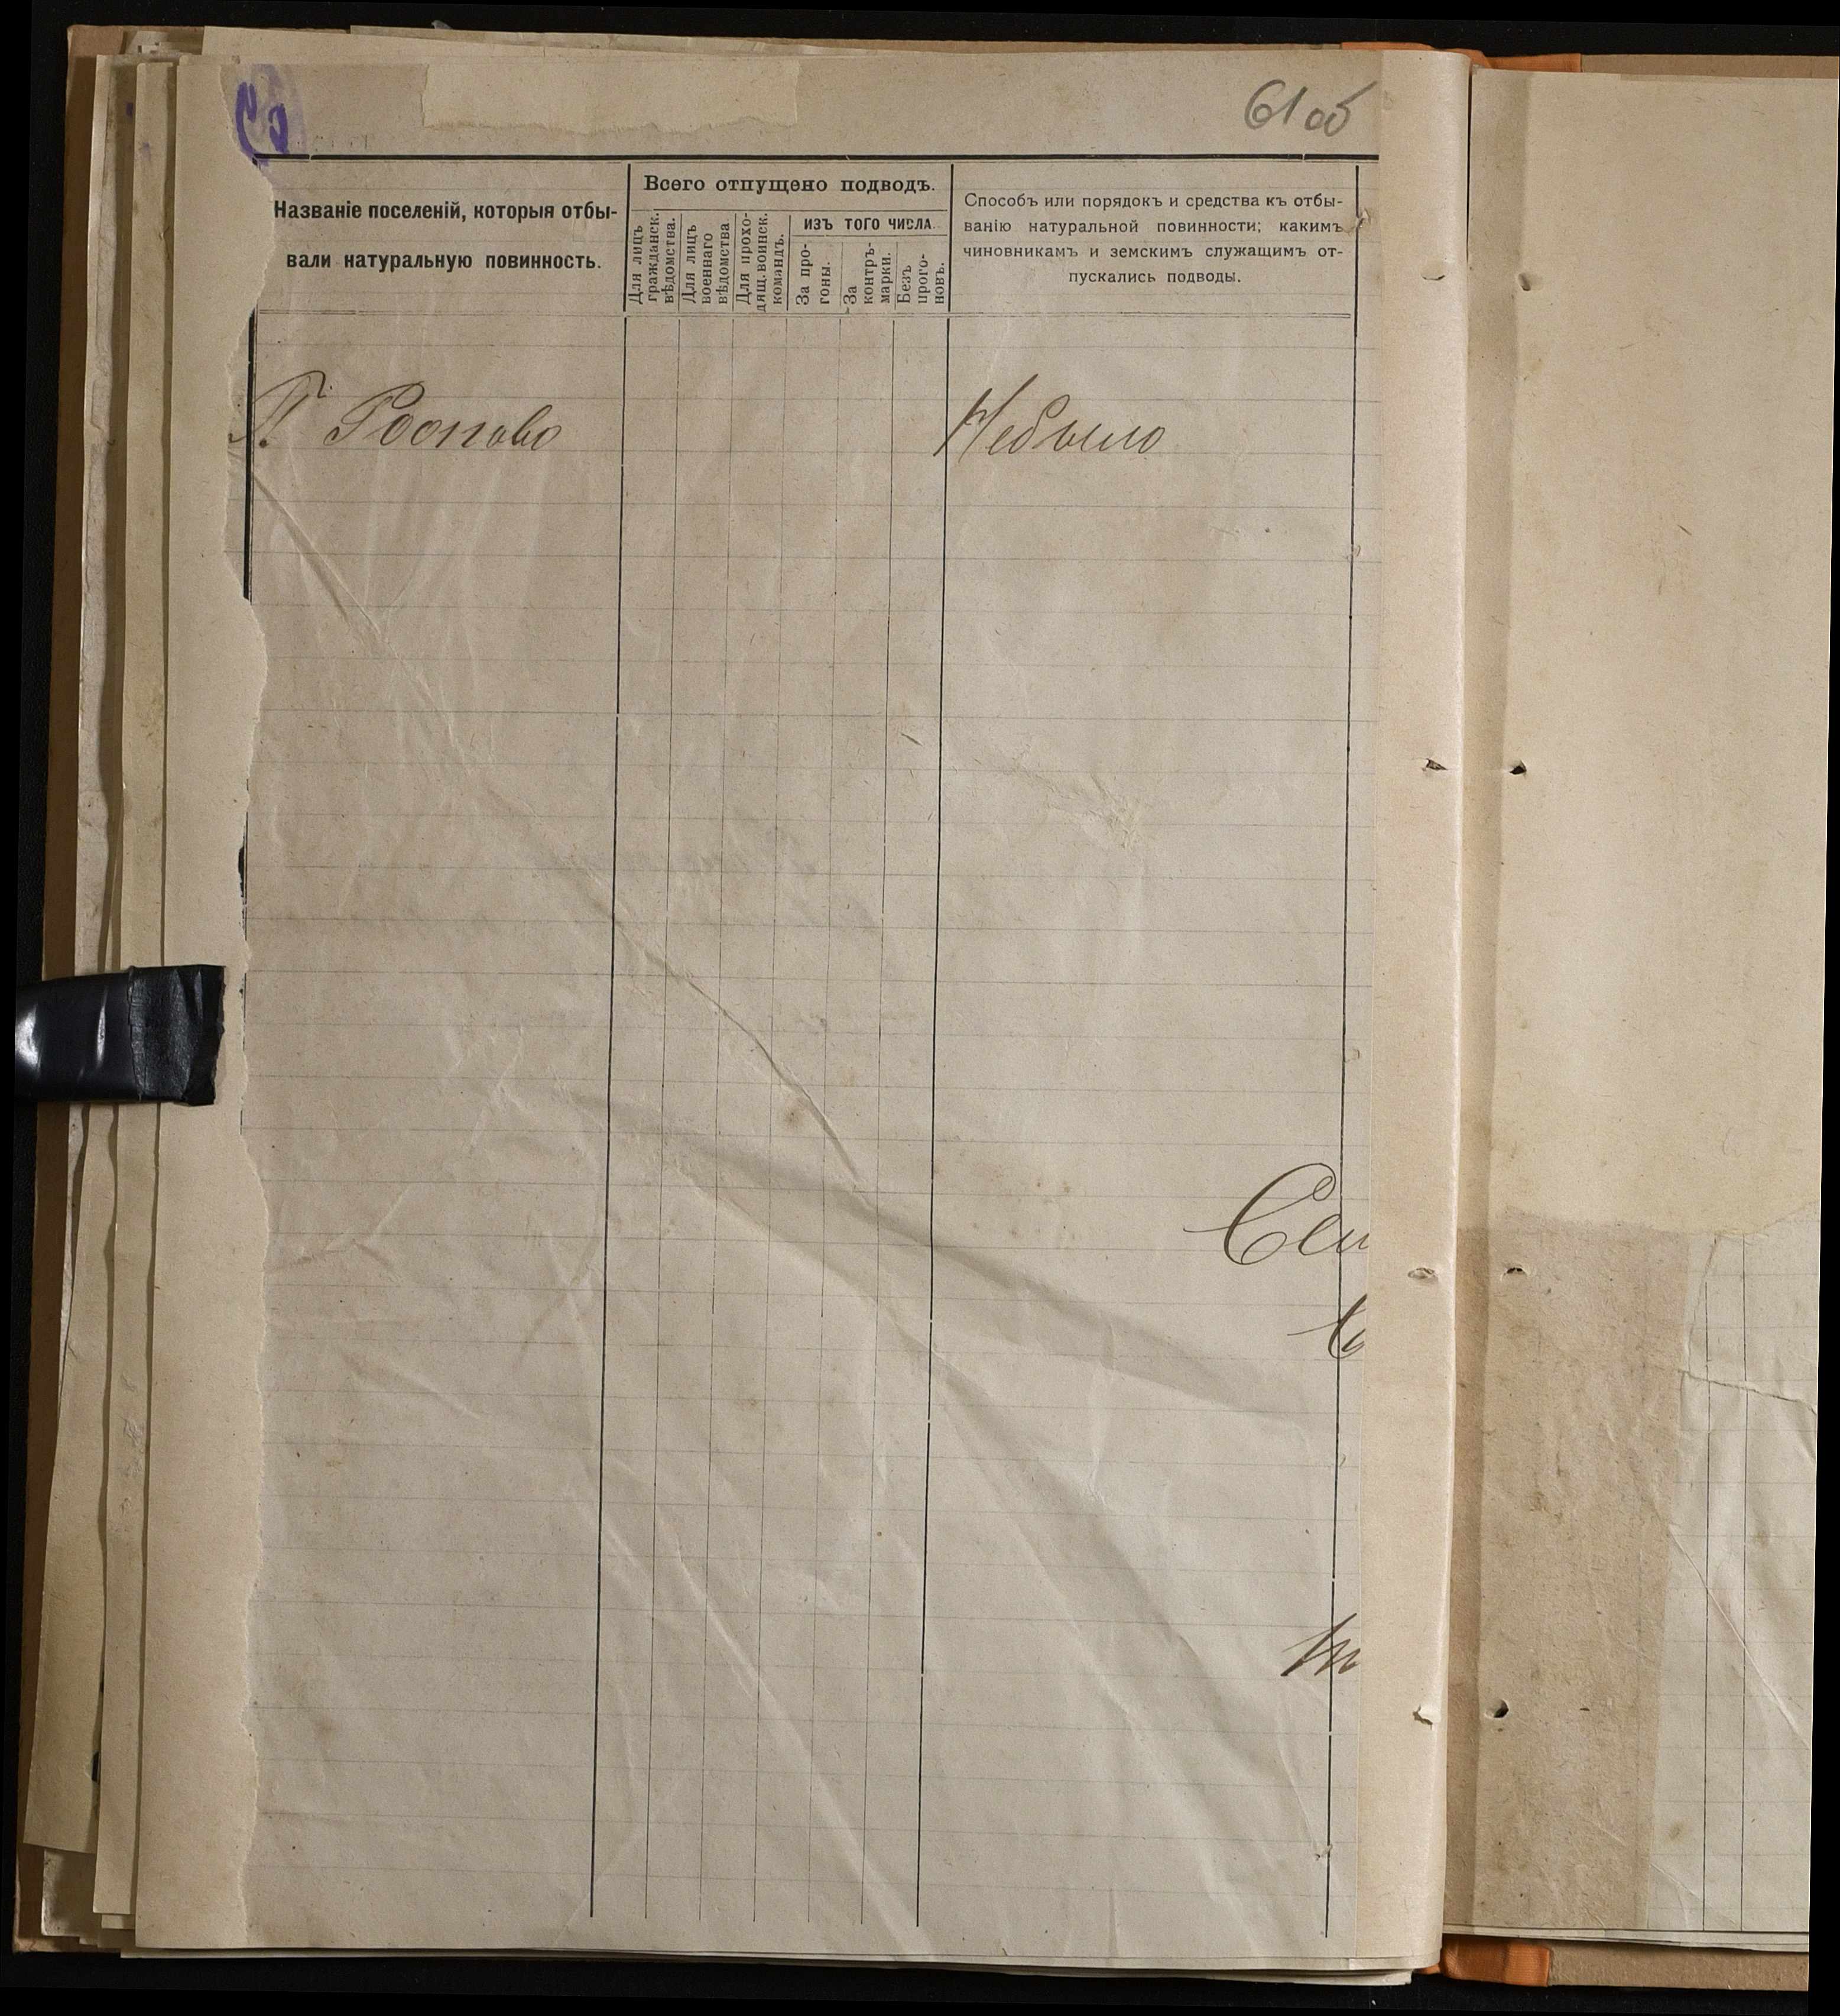 61 об
Названіе поселеній, которыя отбы-
вали натуральную повинность.
Всего отпущено подводъ.
Для лицъ
гражданск.
вѣдомства.
Для лицъ
военнаго
вѣдомства
Для прохо-
дящ. воинск.
командъ.
изъ того числа
За про-
гоны.
За
контръ-
марки.
Безъ
прого-
новъ.
Способъ или порядокъ и средства къ отбы-
ванію натуральной повинности; какимъ
чиновникамъ и земскимъ служащимъ от-
пускались подводы.
Небыло